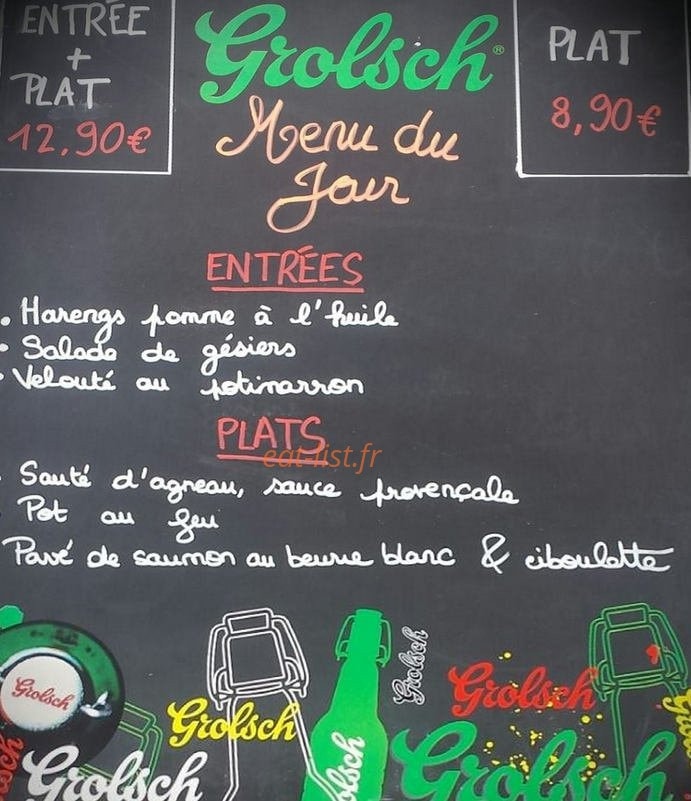 ENTRÉE
+
PLAT
12,90€
Grolsch®
PLAT
8,90€
Menu du
Jour
ENTRÉES
• Harengs pomme à l'huile
• Salade de gésiers
• Velouté au potimarron
PLATS
eat-list.fr
Sauté d'agneau, sauce provençale
Pot au feu
Pavé de saumon au beurre blanc & ciboulette
Grolsch
Grolsch
Grolsch
Grolsch
Grolsch
Grolsch
Grolsch